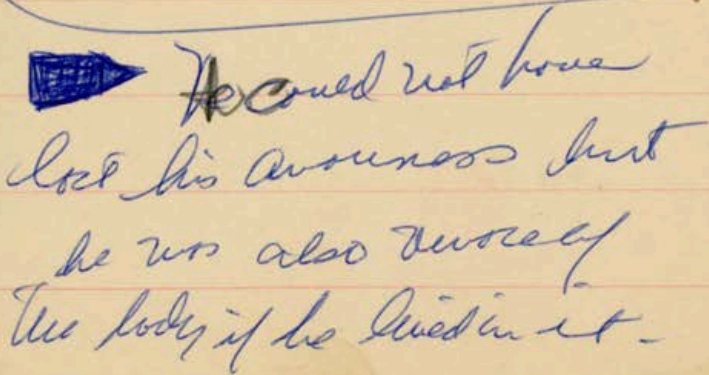 He could not have
lost his awareness but
he was also
the body if he lived in it -